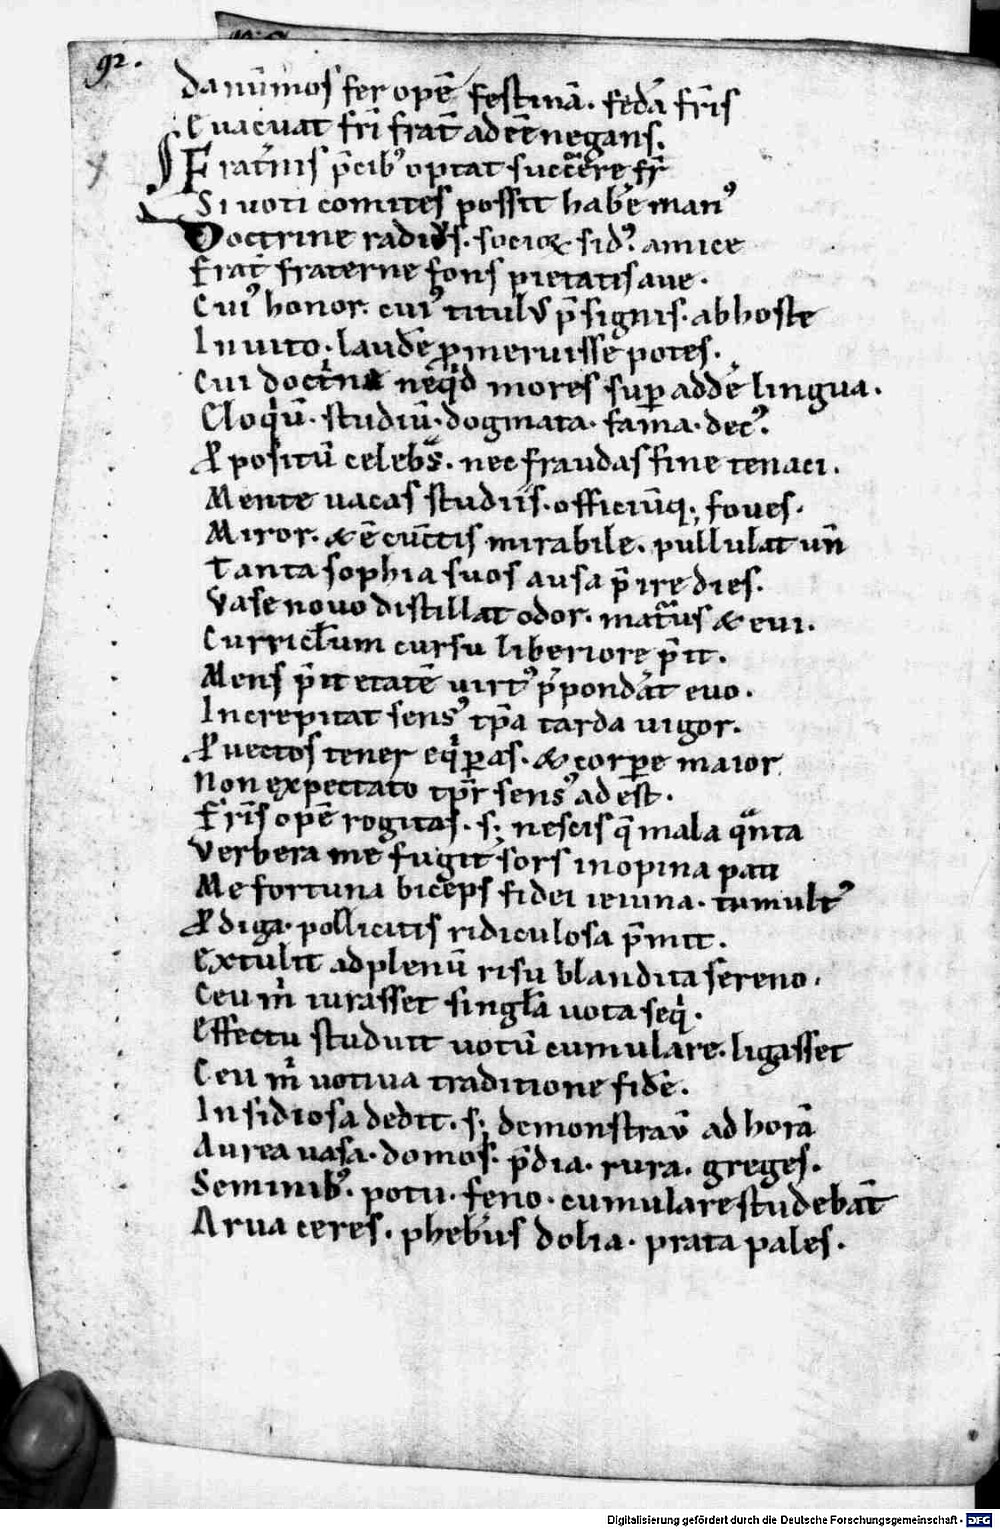 92.
Da nūmos fer opē festinā. fedā fr̄is
Euacuat fr̄i frat̄ adeē negans.
Frat̾nis p̄cib᾽ optat succ̾rere fr̄
Si uoti comites possit hab̾e man᾽
Doctrine radi᾽s. socioꝝ sid᾽. amice
Frat̾ fraterne fons pietatis aue.
Cui᾽ honor. cui᾽ titulū p̄signis. ab hoste
Inuito. laudē ꝓmeruisse potes.
Cui doct̾na neq͛d mores suꝑ addē lingua.
Eloq͛ū. studiū. dogmata. fama. dec᾽.
Ꝓpositū celebͣs. nec fraudas fine tenaci.
Mente uacas studiis. officiūq; foues.
Miror. & ē cūctis mirabile. pullulat un̄
Tanta sophia suos ausa p̄ire dies.
Vase nouo distillat odor. matͣus & eui.
Curricl̄um cursu liberiore p̄it.
Mens p̄it etatē uirt᾽ p̄pondāt euo.
Increpitat sens᾽ tp̄a tarda uigor.
Ꝓuectos tener eq͛ꝑas. & corꝑe maior
Non expectato tp̄r sens᾽ adest.
Fr̄is opē rogitas. s; nescis q̄ mala qͣnta
Verbera me fugit̾ sors inopina pati
Me fortuna biceps fidei ieiuna. tumult᾽
Ꝓdiga. pollicitis ridiculosa p̄mit.
Extulit ad plenū risu blandita sereno.
Ceu m͛ iurasset singl̄a uota seq͛.
Effectu studuit uotū cumulare. ligasset
Ceu m͛ uotiua traditione fidē.
Insidiosa dedit. s; demonstrav̄ ad horā
Aurea uasa. domos. p̄dia. rura. greges.
Seminib᾽. potu. feno. cumulare studebāt
Arua ceres. pheb̾us dolia. prata pales.
Digitalisierung gefördert durch die Deutsche Forschungsgemeinschaft - DFG